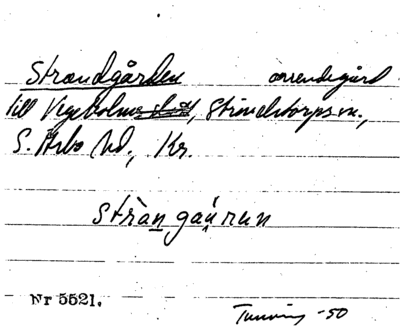 Strandgården arrendegård
till Vegeholm, Strövelstorps sn.,
S. Åsbo hd., Kr.
stràn gáu̧ren
Nr 5521.
Tuneving -50